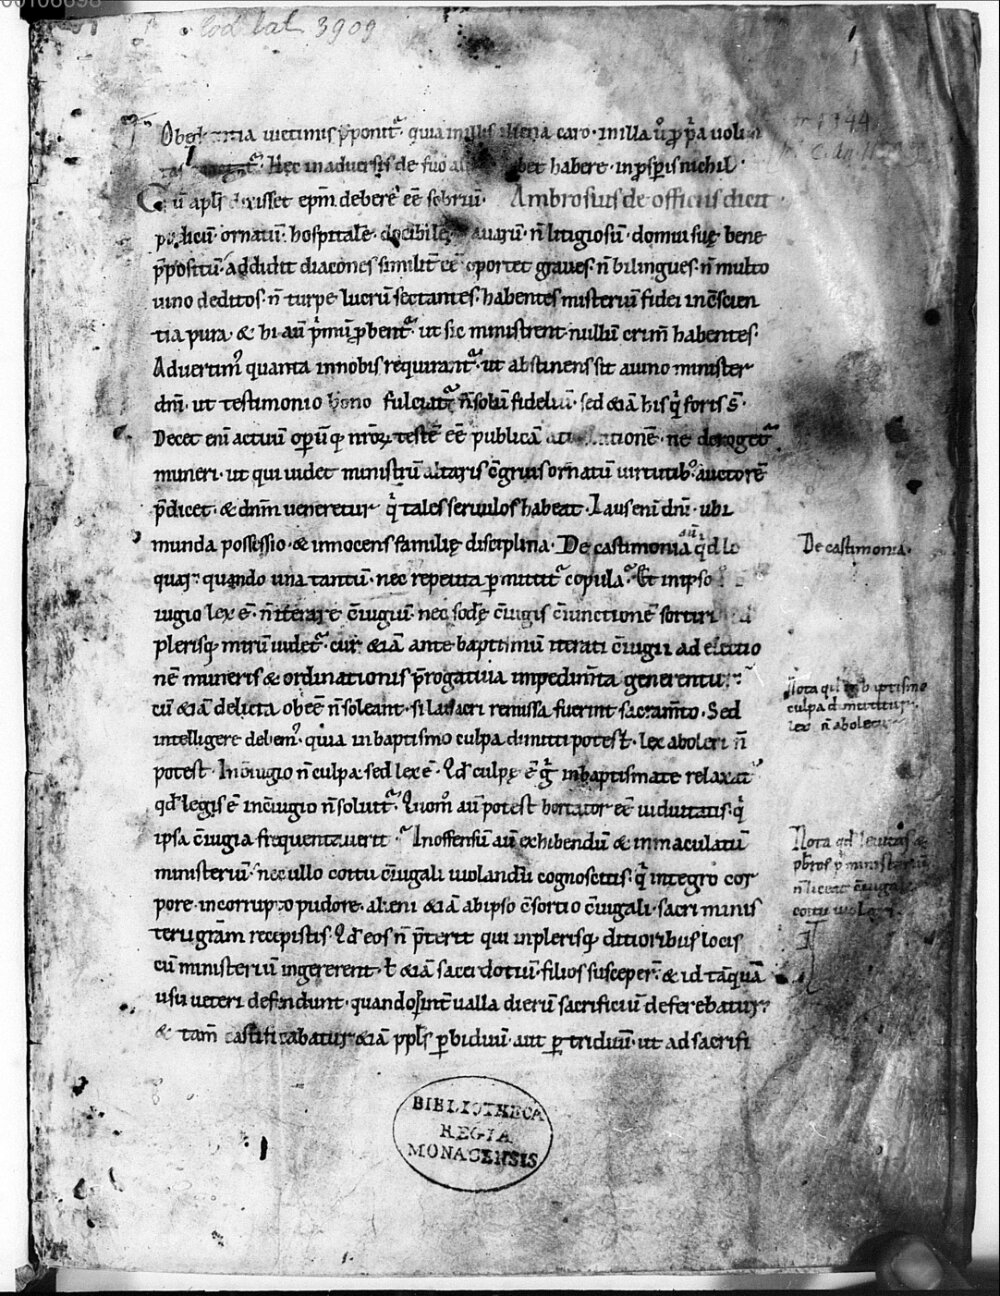 Cod lat 3909
uictimis p̄ponit᷑ · quia in illis aliena caro · in illa u̅ p̄p̄a uolu
Hęc in aduersis de suo habere · in pspis nichil ·
Cū apl̄s dixisset ep̄m deberę eē sobriū · Ambrosius de officiis dicit
pudicū · ornatū · hospitalē · docibilē auarū · n̄ litigiosū · domui suę bene
p̄positū · addidit diacones similit̄ eē oportet graues · n̄ bilingues · n̄ multo
uino deditos · n̄ turpe lucrū sectantes · habentes misteriū fidei in c̄scien
tia pura · & hi aū p̄mū p̱bent᷑ · ut sic ministrent nullū crim̄ habentes ·
Aduertim᷒ quanta in nobis requirant᷑ · ut abstinens sit a uino minister
dn̄i · ut testimonio bono fulciat᷑ n̄ solū fideliū · sed &iā his q̄ foris s̄ ·
Decet eni actuū operūq; nr̄oꝝ testē eē publicā ne deroget᷑
muneri · ut qui uidet ministrū altaris c̄gruis ornatū uirtutib᷒ auctorē
p̄dicet · & dn̄m ueneretur q̄ tales seruulos habeat · Laus eni dn̄i · ubi
munda possessio · & innocens familię disciplina · De castimonia aū qd̄ lo
quar · quando una tantū · nec repetita ꝑmittit᷑ copula · Et in ipso
iugio lex ē · n̄ iterare c̄iugiū · nec scdę c̄iugis c̄iunctionē sortiri
plerisq; mirū uidet᷑ · cur &iā ante baptismū iterati c̄iugii ad electio
nē muneris & ordinationis p̄rogatiua impedim̄ta generentur
cū &iā delicta obeē n̄ soleant · si lauacri remissa fuerint sacram̄to · Sed
intelligere debem᷒ · quia in baptismo culpa dimitti potest · lex aboleri n̄
potest · In c̄iugio n̄ culpa · sed lex ē · Qd̄ culpę ē g̊ in baptismate relaxat᷑
qd̄ legis ē in c̄iugio n̄ soluit᷑ · Quom̊ aū potest hortator eē uiduitatis · q̄
ipsa c̄iugia frequentauerit · Inoffensū aū exhibendū & inmaculatū
ministeriū · nec ullo coitu c̄iugali uiolandū cognoscitis · q̄ integro cor
pore · incorrupto pudore · alieni &iā ab ipso c̄sortio c̄iugali · sacri minis
terii gram̄ recepistis · Qd̄ eos n̄ p̄terii qui in plerisq; ditioribus locis
cū ministeriū ingererent · ł &iā sacerdotiū · filios susceper̄ · & id tāquā
usu ueteri defendunt · quando ꝑ int̄ualla dierū sacrificiū deferebatur
& tam̄ castificabatur &iā ppl̄s ꝑ biduū · aut ꝑ triduū · ut ad sacrifi
De castimonia ·
Nota qd̄ baptismo
culpa dimittitur
lex n̄ aboletur
Nota qd̄ leuitas &
pb̄ros p̄ ministeriū
n̄ liceat c̄iugali
coitu uiolari ·
BIBLIOTHECA
REGIA
MONACENSIS